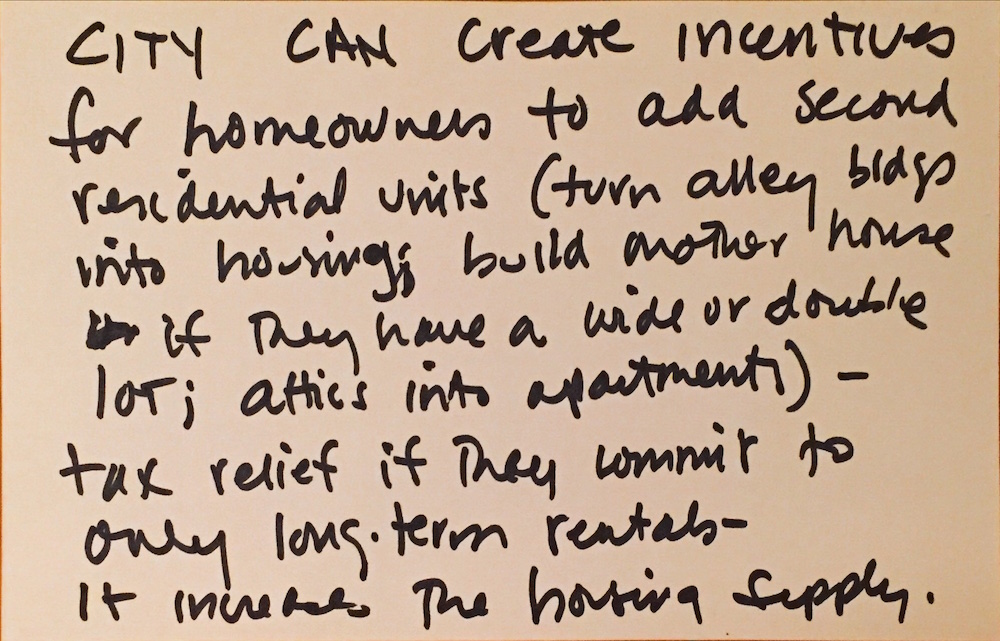 CITY CAN Create incentives
for homeowners to add second
residential units (turn alley bldgs
into housing; build another house
if they have a wide or double
lot; attics into apartments) –
tax relief if they commit to
only long-term rentals–
It increases the housing supply.